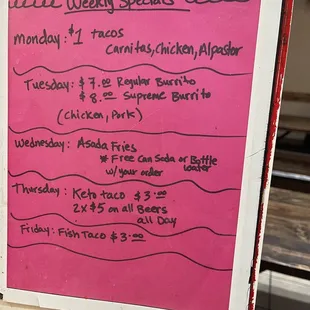 Weekly Specials
monday: $1 tacos
Carnitas, Chicken, Alpastor
Tuesday: $7.00 Regular Burrito
$8.00 Supreme Burrito
(Chicken, Pork)
Wednesday: Asada Fries
* Free Can Soda or Bottle
water
w/your order
Thursday: Keto taco $3.00
2x$5 on all Beers
all Day
Friday: Fish Taco $3.00